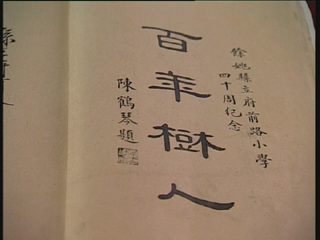 餘姚縣立府前路小學
四十周紀念
百年樹人
陳鶴琴題